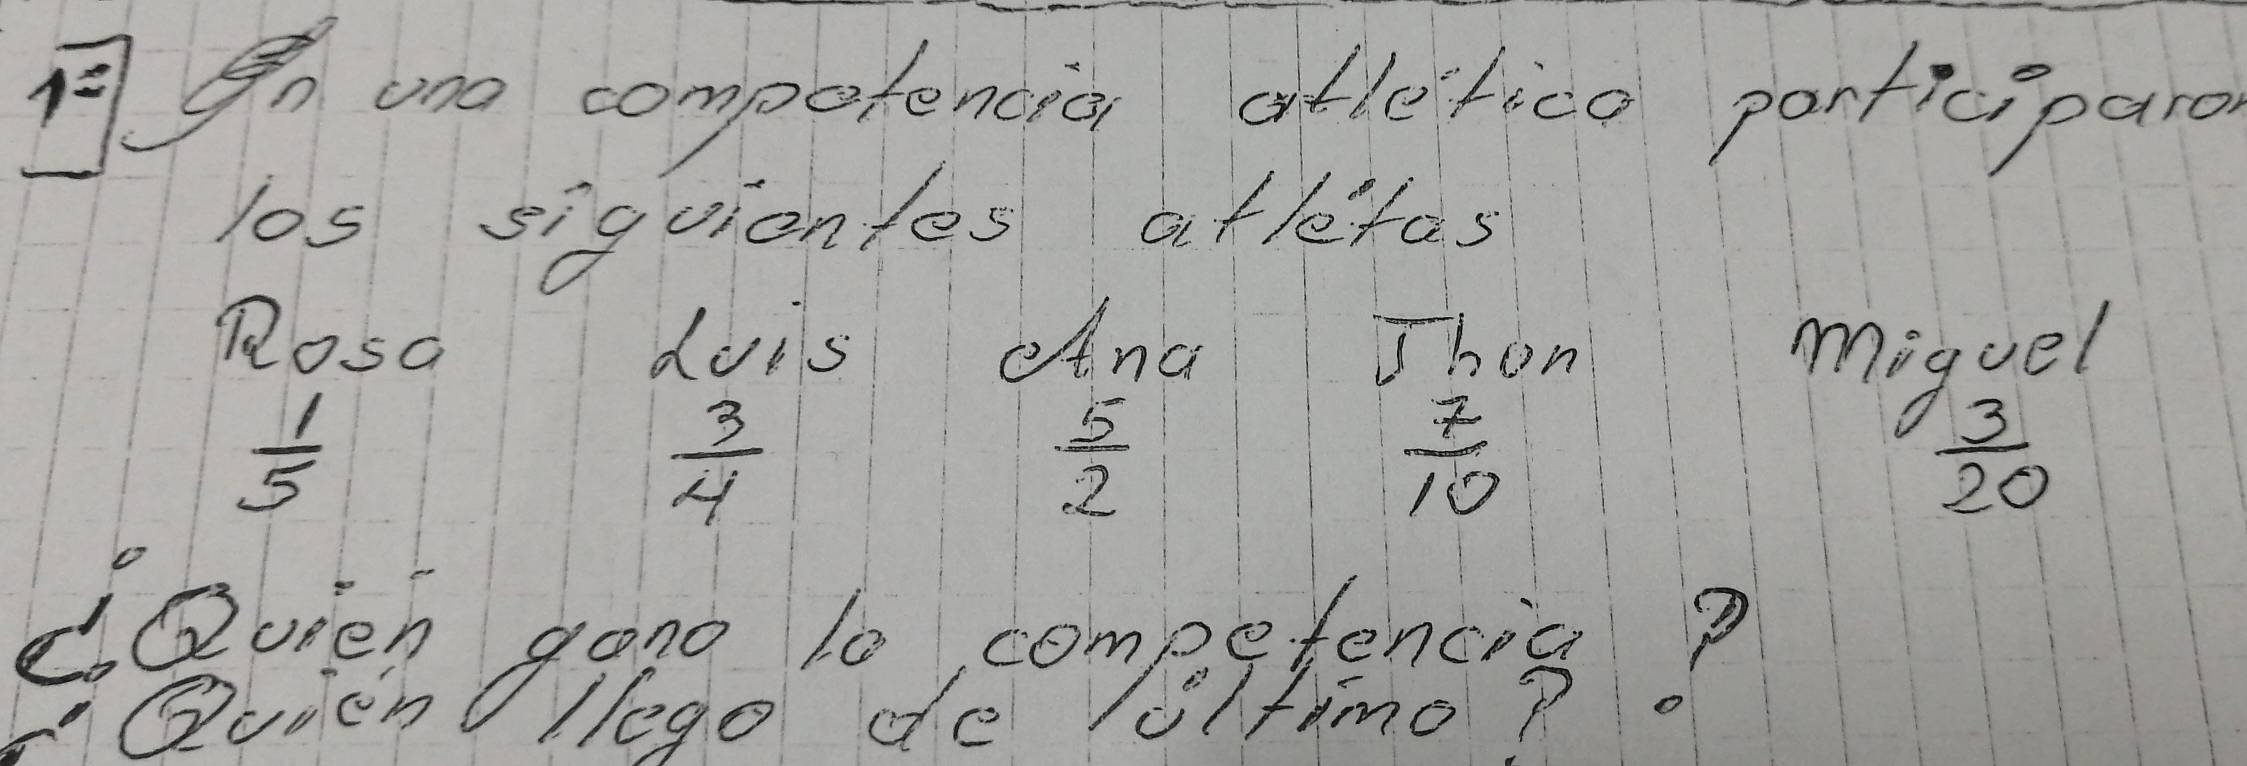 1º En una competencia atlética participaron
los siguientes atlétas
Rosa Luis Ana Jhon Miguel
1/5 3/4 5/2 7/10 3/20
¿Quién gano la competencia?
¿Quién llego de último?